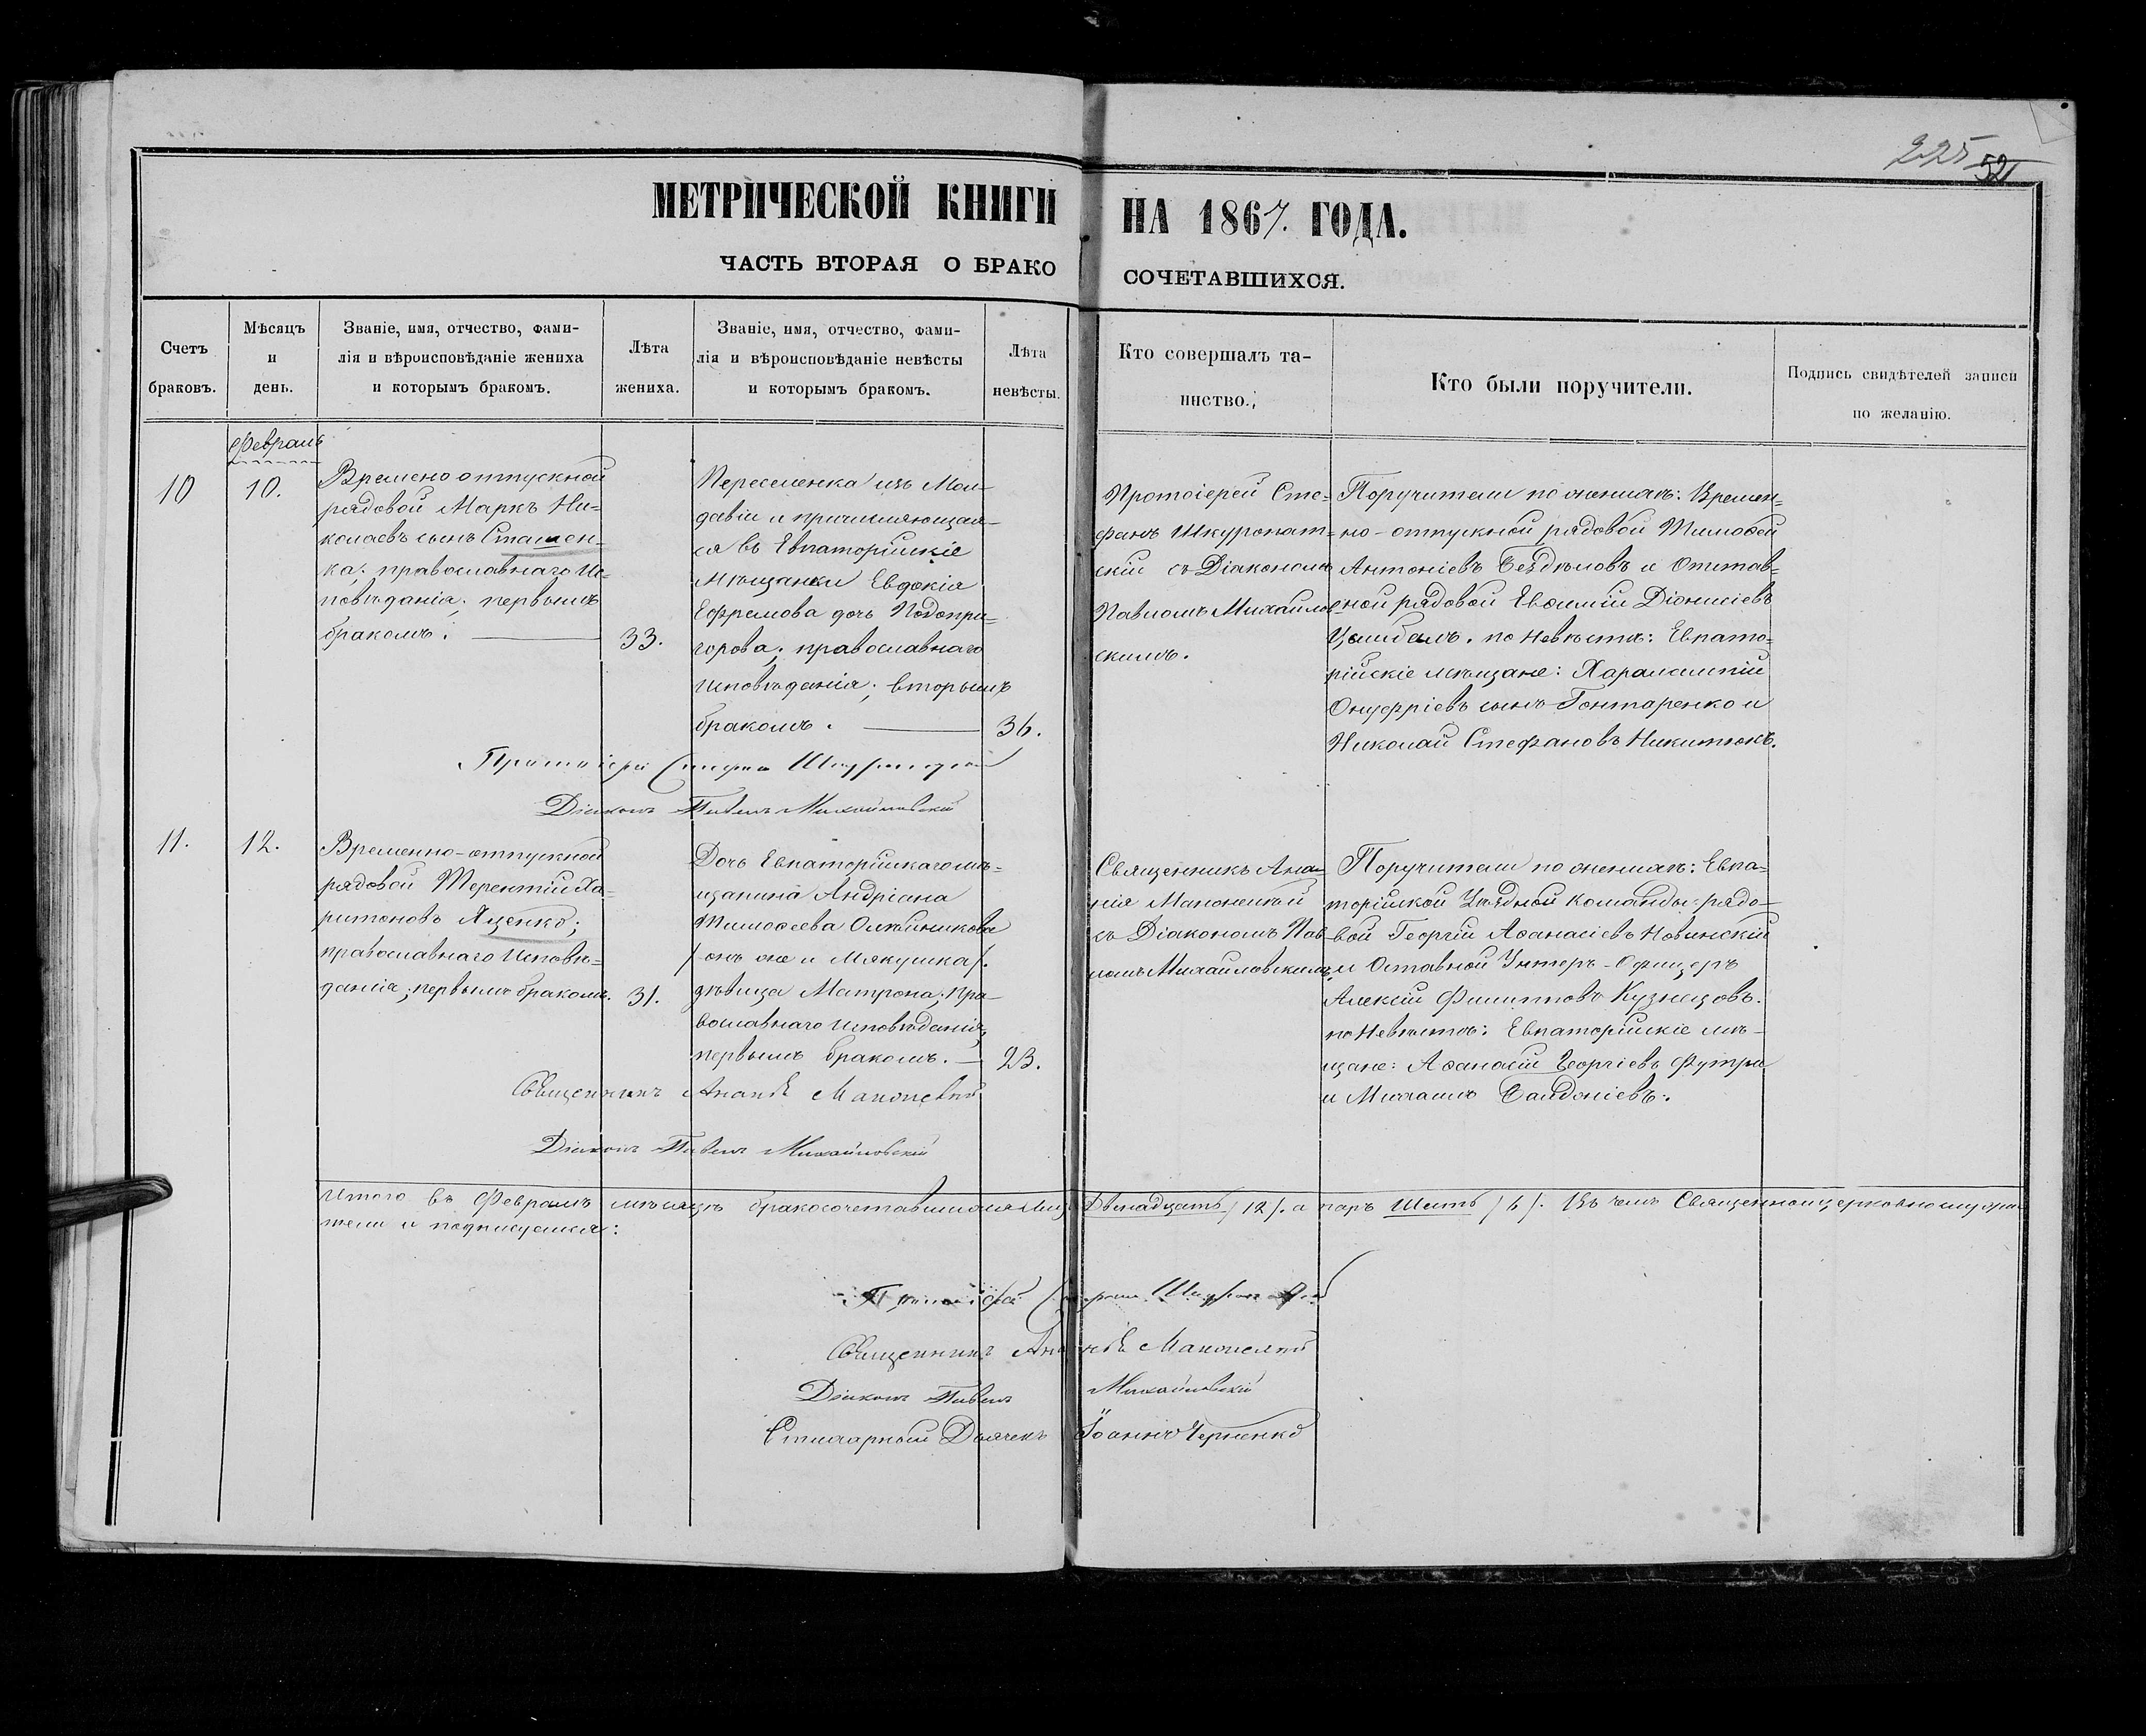 225
52
МЕТРИЧЕСКОЙ КНИГИ НА 1867. ГОДА.
ЧАСТЬ ВТОРАЯ О БРАКОСОЧЕТАВШИХСЯ.
Счетъ
браковъ.
Мѣсяцъ
и
день.
Званіе, имя, отчество, фами-
лія и вѣроисповѣданіе жениха
и которымъ бракомъ.
Лѣта
жениха.
Званіе, имя, отчество, фами-
лія и вѣроисповѣданіе невѣсты
и которымъ бракомъ.
Лѣта
невѣсты.
Кто совершалъ та-
инство.
Кто были поручители.
Подпись свидѣтелей записи
по желанію.
Февраль
10
10.
Времено отпускной
рядовой Маркъ Ни=
колаевъ сынъ Сташен-
ка; православнаго Ис-
повѣданія; первымъ
бракомъ.
33.
Переселенка изъ Мол-
давіи и причисляющая-
ся въ Евпаторійскіе
мѣщанки Евдокія
Ефремова дочь Подопри-
горова; православнаго
исповѣданія; вторымъ
бракомъ.
36.
Протоіерей Сте-
фанъ Шкуропат=
скій съ Діакономъ
Павломъ Михайлов-
скимъ.
Поручители по женихѣ: Времен=
но-отпускной рядовой Тимофей
Антоніевъ Бездѣловъ и Отстав=
ной рядовой Евѳимій Діонисіевъ
Цымбалъ. по Невѣстѣ: Евпато=
рійскіе мѣщане: Харалампій
Онуфріевъ сынъ Гонтаренко и
Николай Стефановъ Никитюкъ.
Протоіерей Стефанъ Шкуропатскій
Діаконъ Павелъ Михайловскій
11.
12.
Временно-отпускной
рядовой Терентій Ха-
ритоновъ Яценко;
православнаго Исповѣ=
данія; первымъ бракомъ.
31.
Дочь Евпаторійскаго мѣ-
щанина Андріана
Тимоѳеева Олейникова
/онъ же и Мякушка/.
дѣвица Матрона; Пра-
вославнаго исповѣданія;
первымъ бракомъ.
23.
Священникъ Ана-
нія Маконскій
съ Діакономъ Пав-
ломъ Михайловскимъ
Поручители по женихѣ: Евпа-
торійской Уѣздной команды рядо-
вой Георгій Аѳанасіевъ Новинскій
и Отставной Унтеръ-Офицеръ
Алексій Филипповъ Кузнецовъ.
по Невѣстѣ: Евпаторійскіе мѣ-
щане: Аѳанасій Георгіевъ Футри
и Михаилъ
Священникъ Ананія Маконскій
Діаконъ Павелъ Михайловскій
Итого въ Февралѣ мѣсяцѣ бракосочетавшихся лицъ Двенадцать /12/. а паръ Шесть /6/. Въ чемъ Священноцерковнослужи
тели и подписуемся:
Протоіерей Стефанъ Шкуропатскій
Священникъ Ананія Маконскій
Діаконъ Павелъ Михайловскій
Стихарный Дьячекъ Іоаннъ Черненко